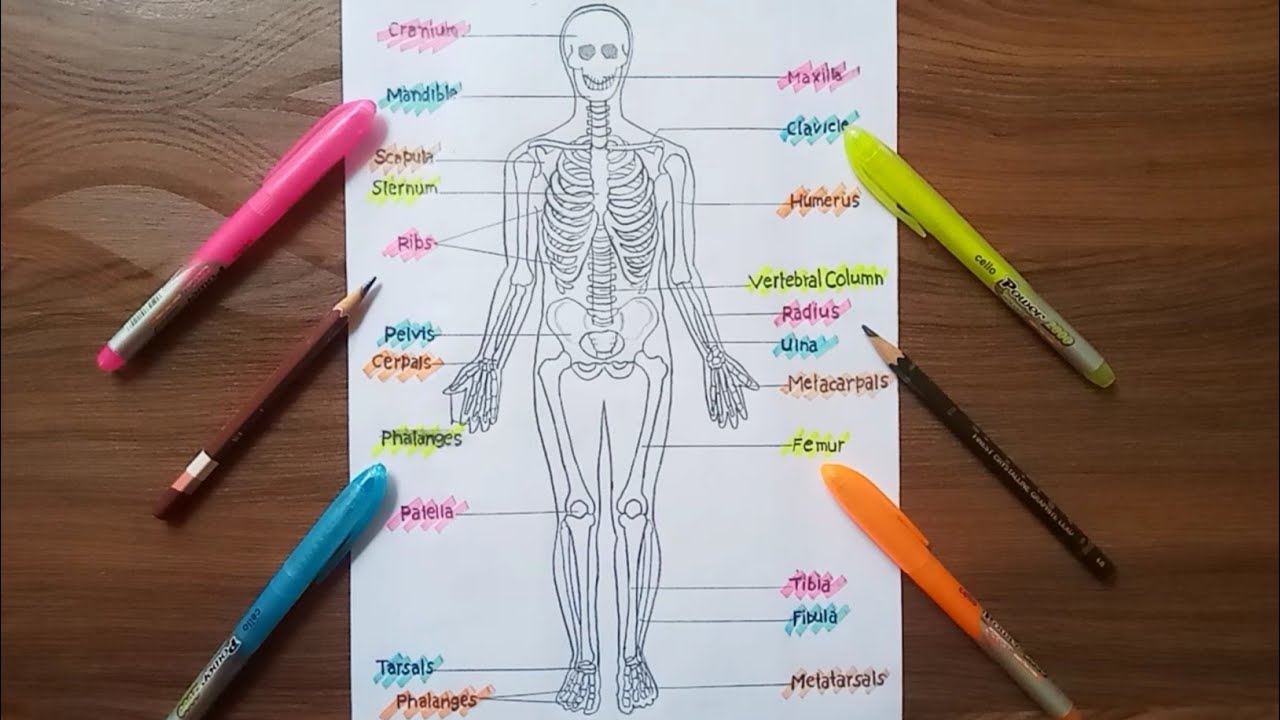 Cranium
Maxilla
Mandible
Clavicle
Scapula
Sternum
Humerus
Ribs
Vertebral Column
Radius
Pelvis
Ulna
Cerpals
Metacarpals
Phalanges
Femur
Patella
Tibia
Fibula
Tarsals
Metatarsals
Phalanges
cello
Power 2000
cello
Power 2000
cello